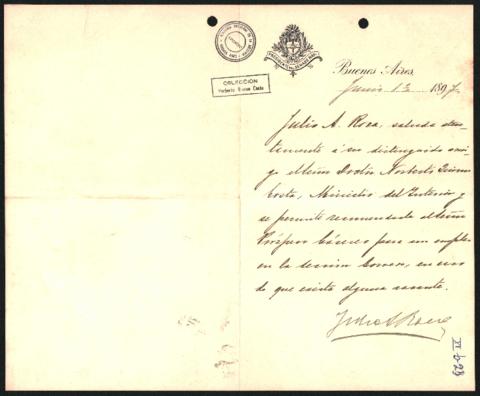 COLECCION
Norberto Quirno Costa
Buenos Aires
Junio 12 1897
Julio A. Roca, saluda aten-
tamente á su distinguido ami-
go el señor Doctor Norberto Quirno
Costa, Ministro del Interior y
se permite recomendarle al señor
Cáceres para un empleo
en la seccion Correos, en caso
de que exista alguna vacante.
Julio A Roca